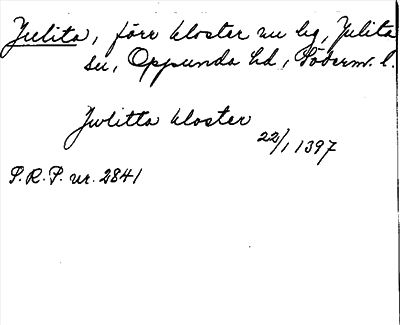 Julita, förr kloster nu lg, Julita
sn, Oppunda hd, Söderm. l.
Jwlitta kloster
22/1 1397
S.R.P. nr. 2841